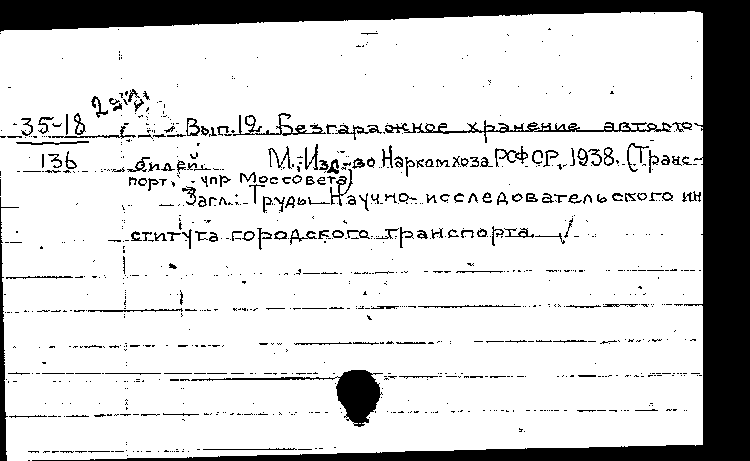 35-18
136
Вып.12. Безгаражное хранение автомо-
билей. М., Изд-во Наркомхоза РСФСР, 1938. (Транс-
порт. упр Моссовета)
Загл.: Труды Научно-исследовательского ин
ститута городского транспорта.